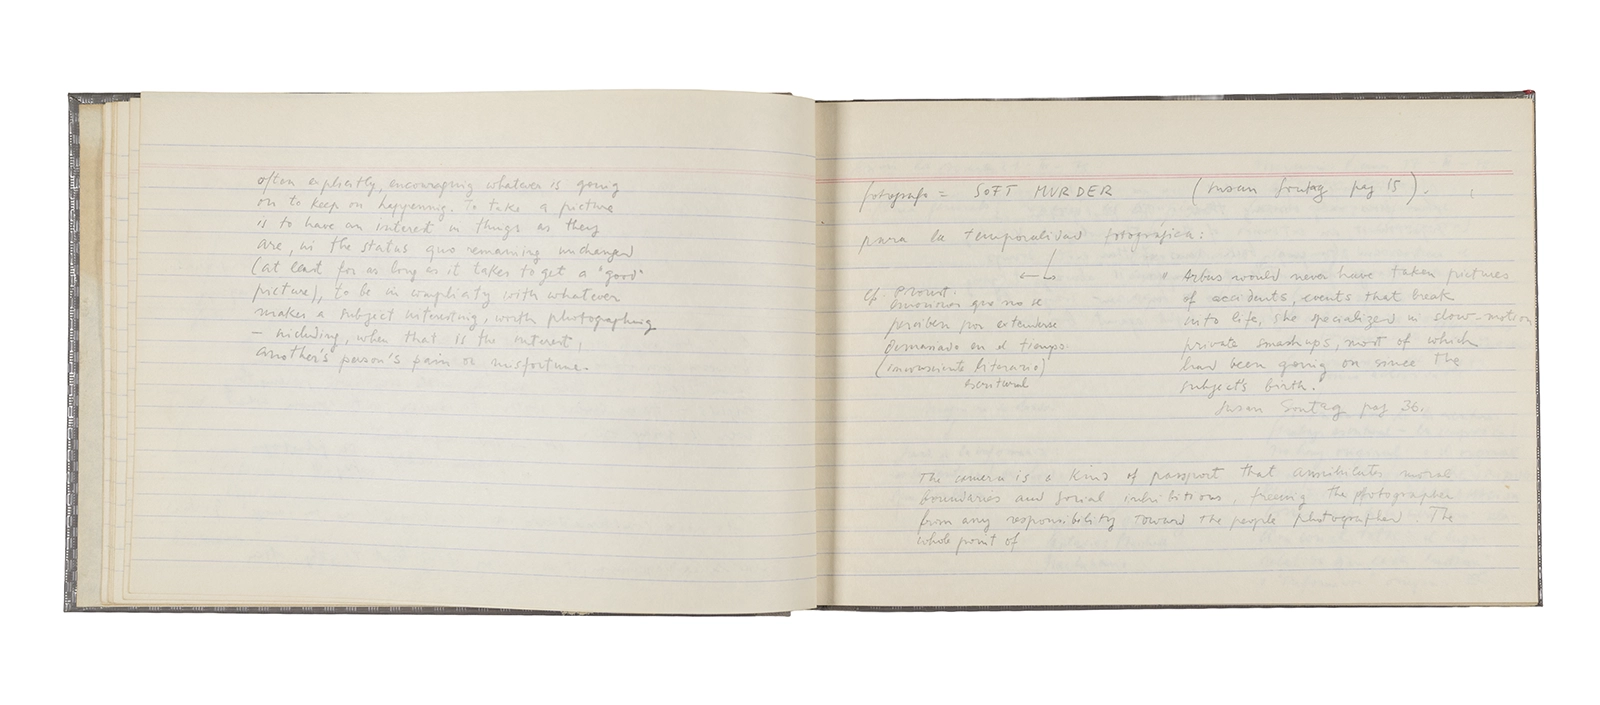 often explicitly, encouraging whatever is going
on to keep on happening. To take a picture
is to have an interest in things as they
are, in the status quo remaining unchanged
(at least for as long as it takes to get a "good"
picture), to be in complicity with whatever
makes a subject interesting, worth photographing
— including, when that is the interest,
another's person's pain or misfortune.
fotografo = SOFT MURDER (Susan Sontag pag 15).
para la temporalidad fotográfica:
cf. Proust.
que no se
perciben por extenderse
demasiado en el tiempo
(inconsciente literario)
escritural
" Arbus would never have taken pictures
of accidents, events that break
into life, she specialized in slow-motion
private smashups, most of which
had been going on since the
subject's birth."
Susan Sontag pag 36.
The camera is a kind of passport that annihilates moral
boundaries and social inhibitions, freeing the photographer
from any responsibility toward the people photographed. The
whole point of